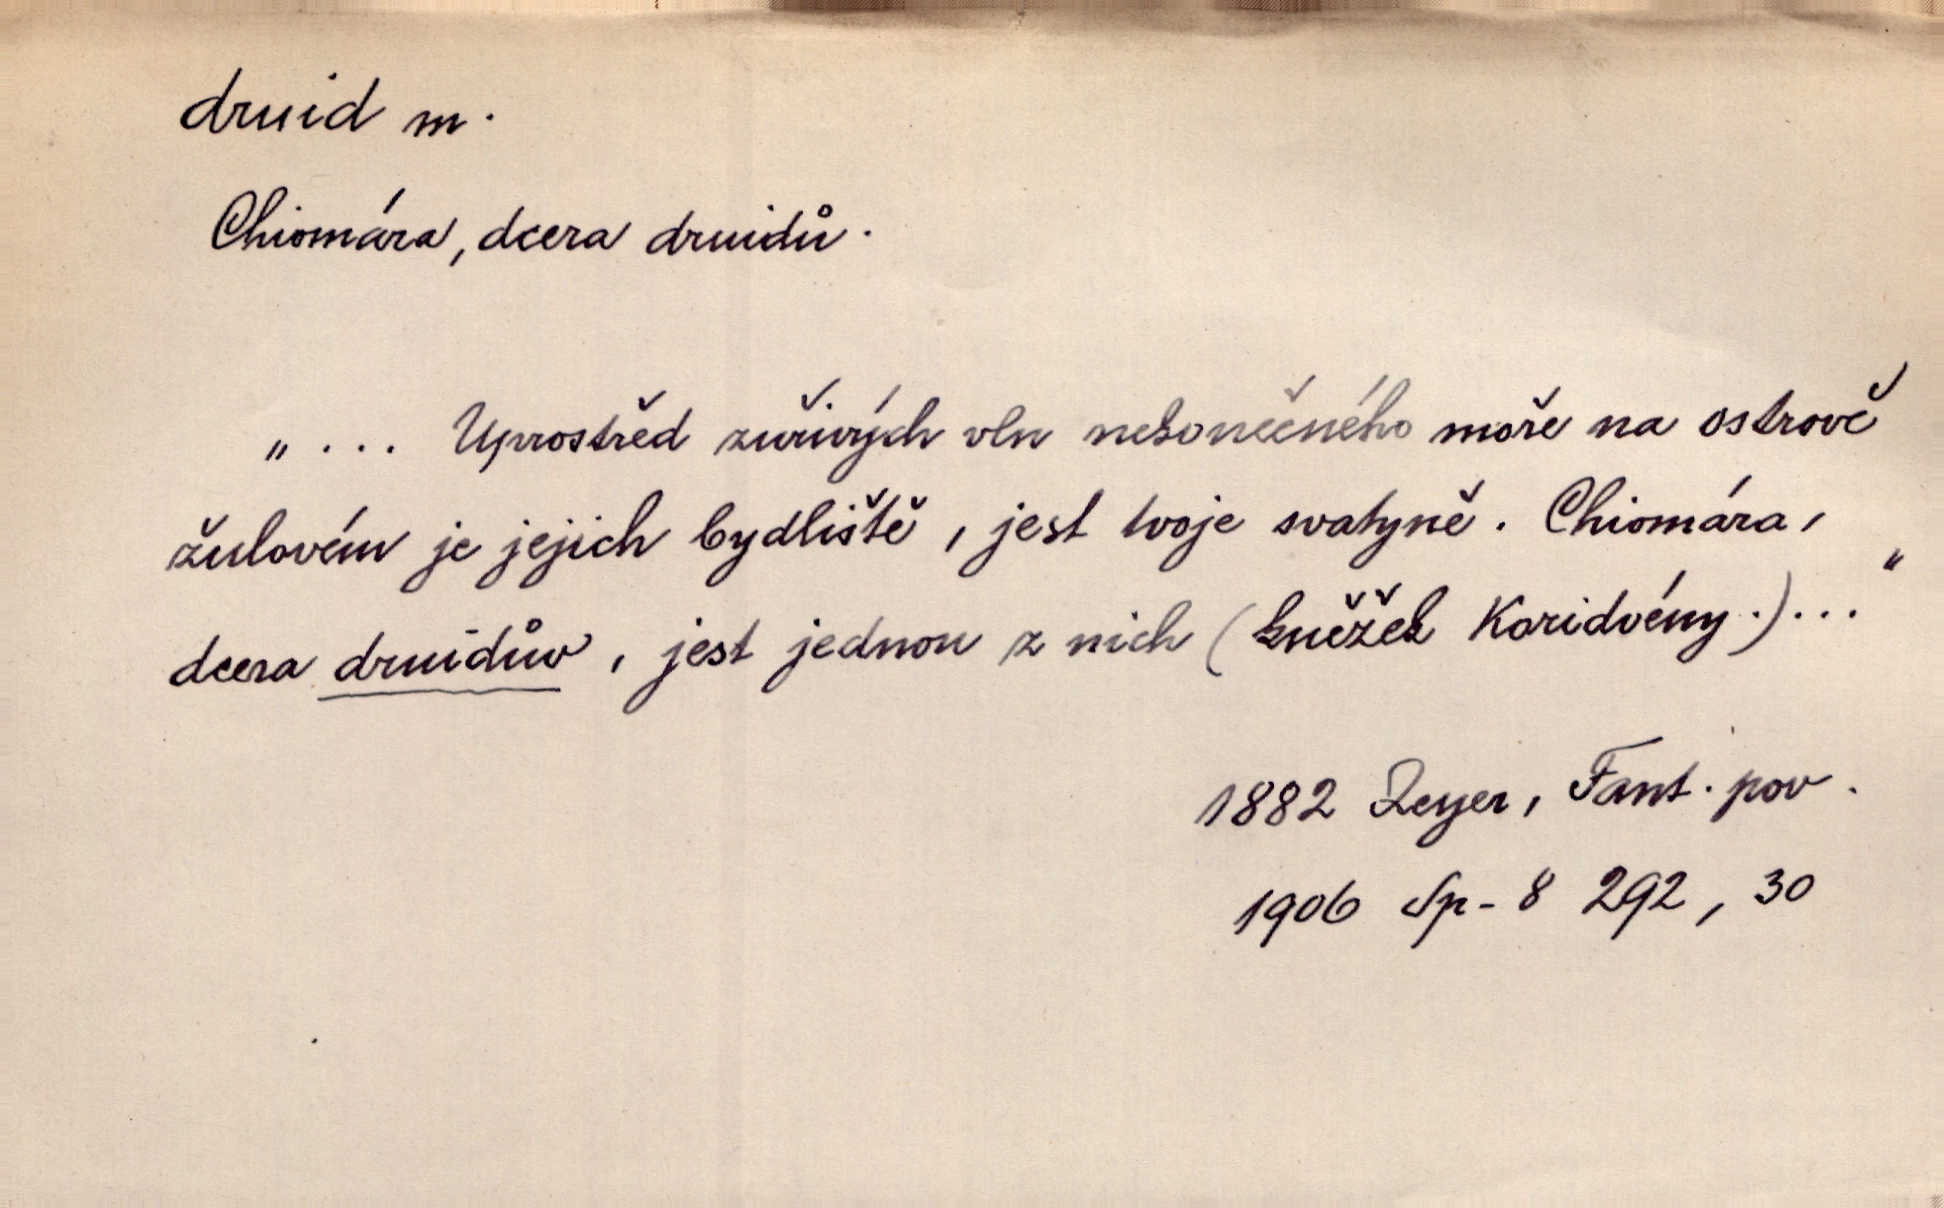 druid m.
Chiomára, dcera druidů.
„... Uprostřed zuřivých vln nekonečného moře na ostrově
žulovém je jejich bydliště, jest tvoje svatyně. Chiomára,
dcera druidův, jest jednou z nich (kněžek Koridvény.)..."
1882 Zeyer, Fant. pov.
1906 Sp-8 292, 30